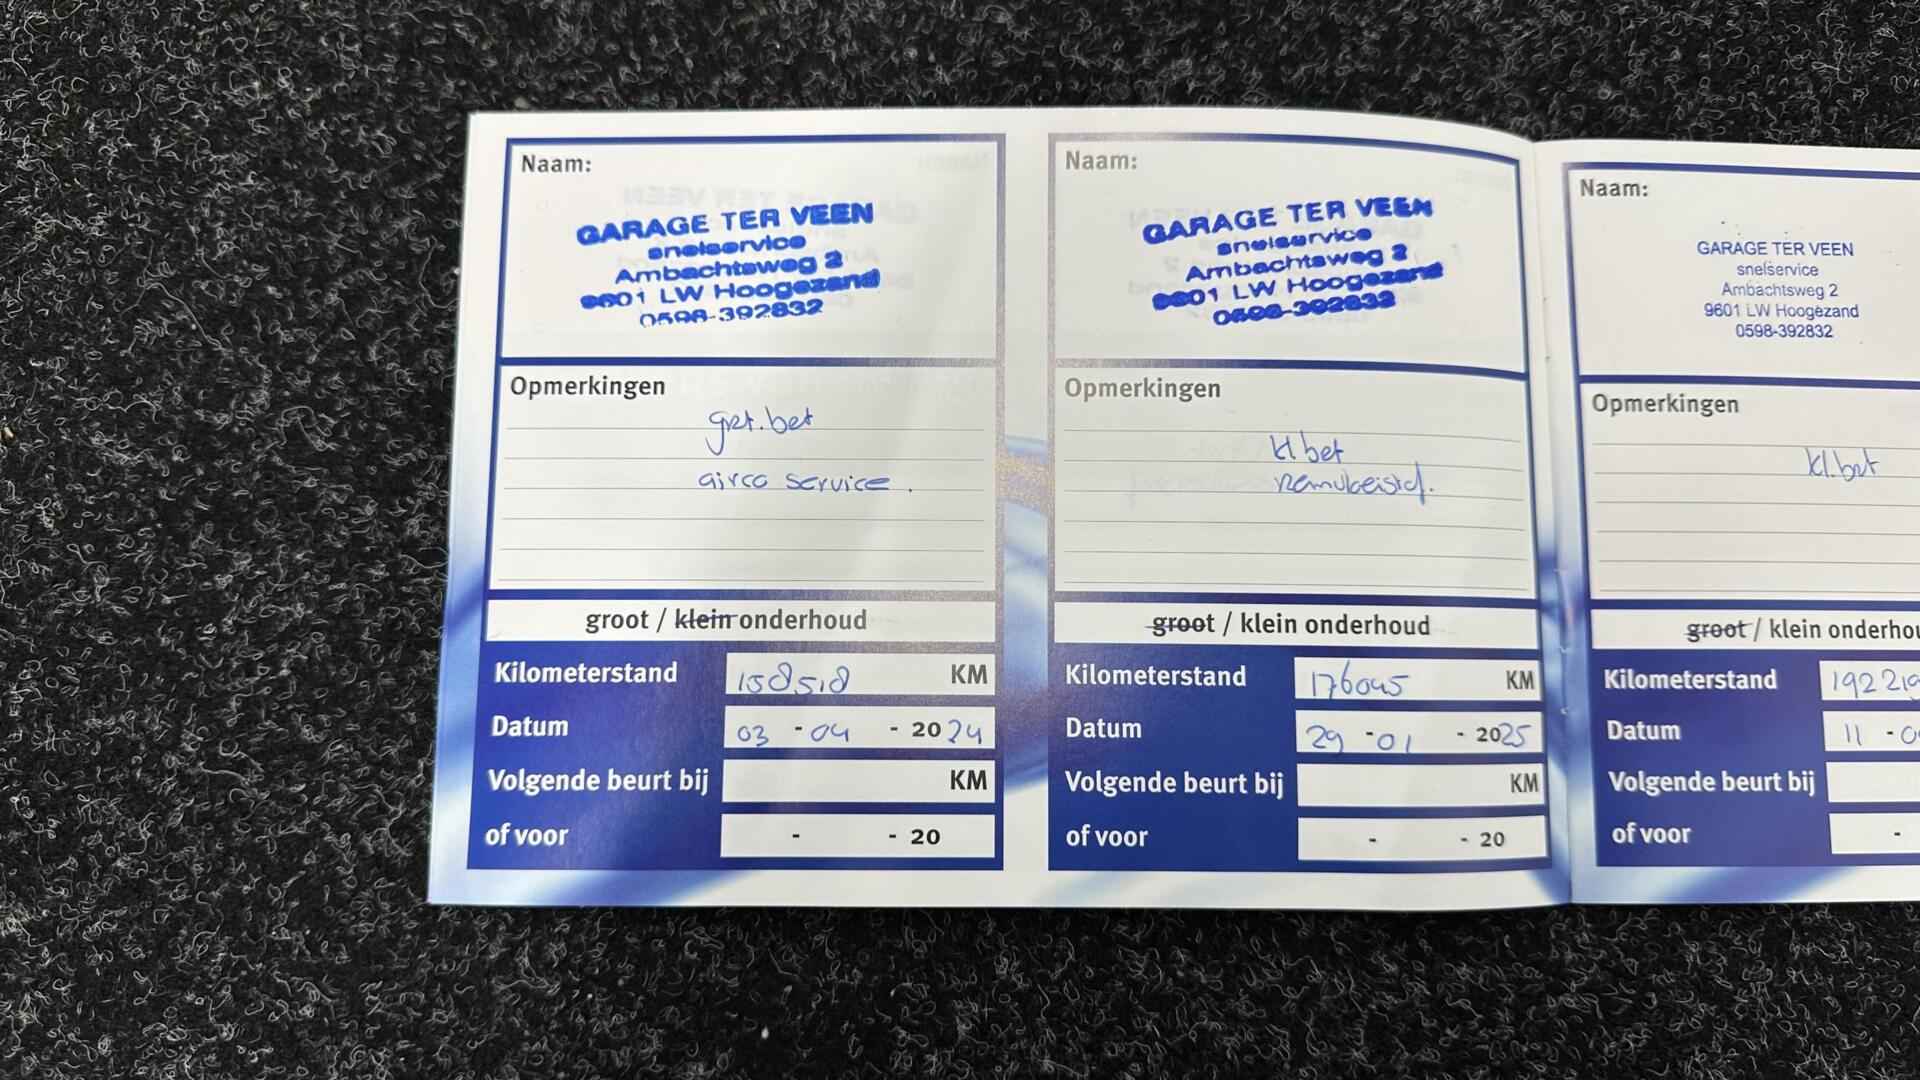 Naam:
GARAGE TER VEEN
snelservice
Ambachtsweg 2
9601 LW Hoogezand
0598-392832
Opmerkingen
grt.bet
airco service.
groot / klein onderhoud
Kilometerstand 158518 KM
Datum 03 - 04 - 2024
Volgende beurt bij KM
of voor - - 20
Naam:
GARAGE TER VEEN
snelservice
Ambachtsweg 2
9601 LW Hoogezand
0598-392832
Opmerkingen
kl bet
groot / klein onderhoud
Kilometerstand 176045 KM
Datum 29 - 01 - 2025
Volgende beurt bij KM
of voor - - 20
Naam:
GARAGE TER VEEN
snelservice
Ambachtsweg 2
9601 LW Hoogezand
0598-392832
Opmerkingen
kl.bet
groot / klein onderhou
Kilometerstand 192219
Datum 11 - 0
Volgende beurt bij
of voor -